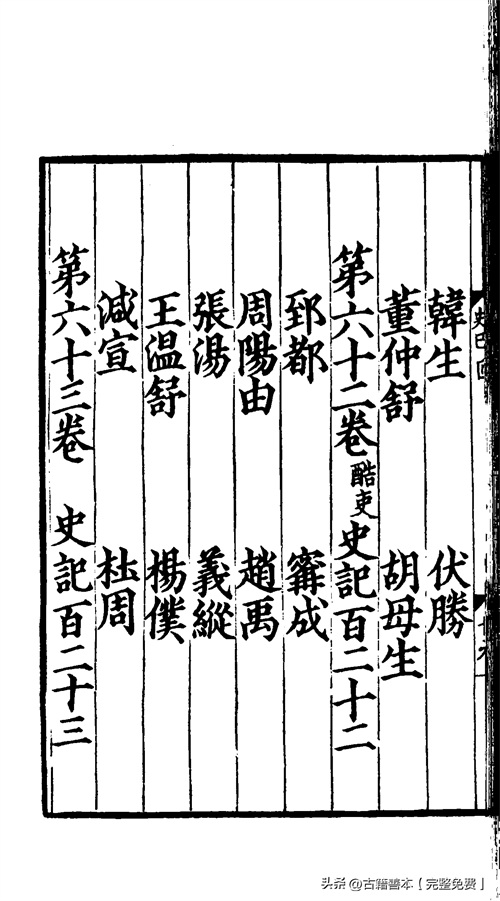 韓生 伏勝
董仲舒 胡母生
第六十二卷 酷吏 史記百二十二
郅都 寗成
周陽由 趙禹
張湯 義縱
王温舒 楊僕
減宣 杜周
第六十三卷 史記百二十三
头条 @古籍善本【完整免费】